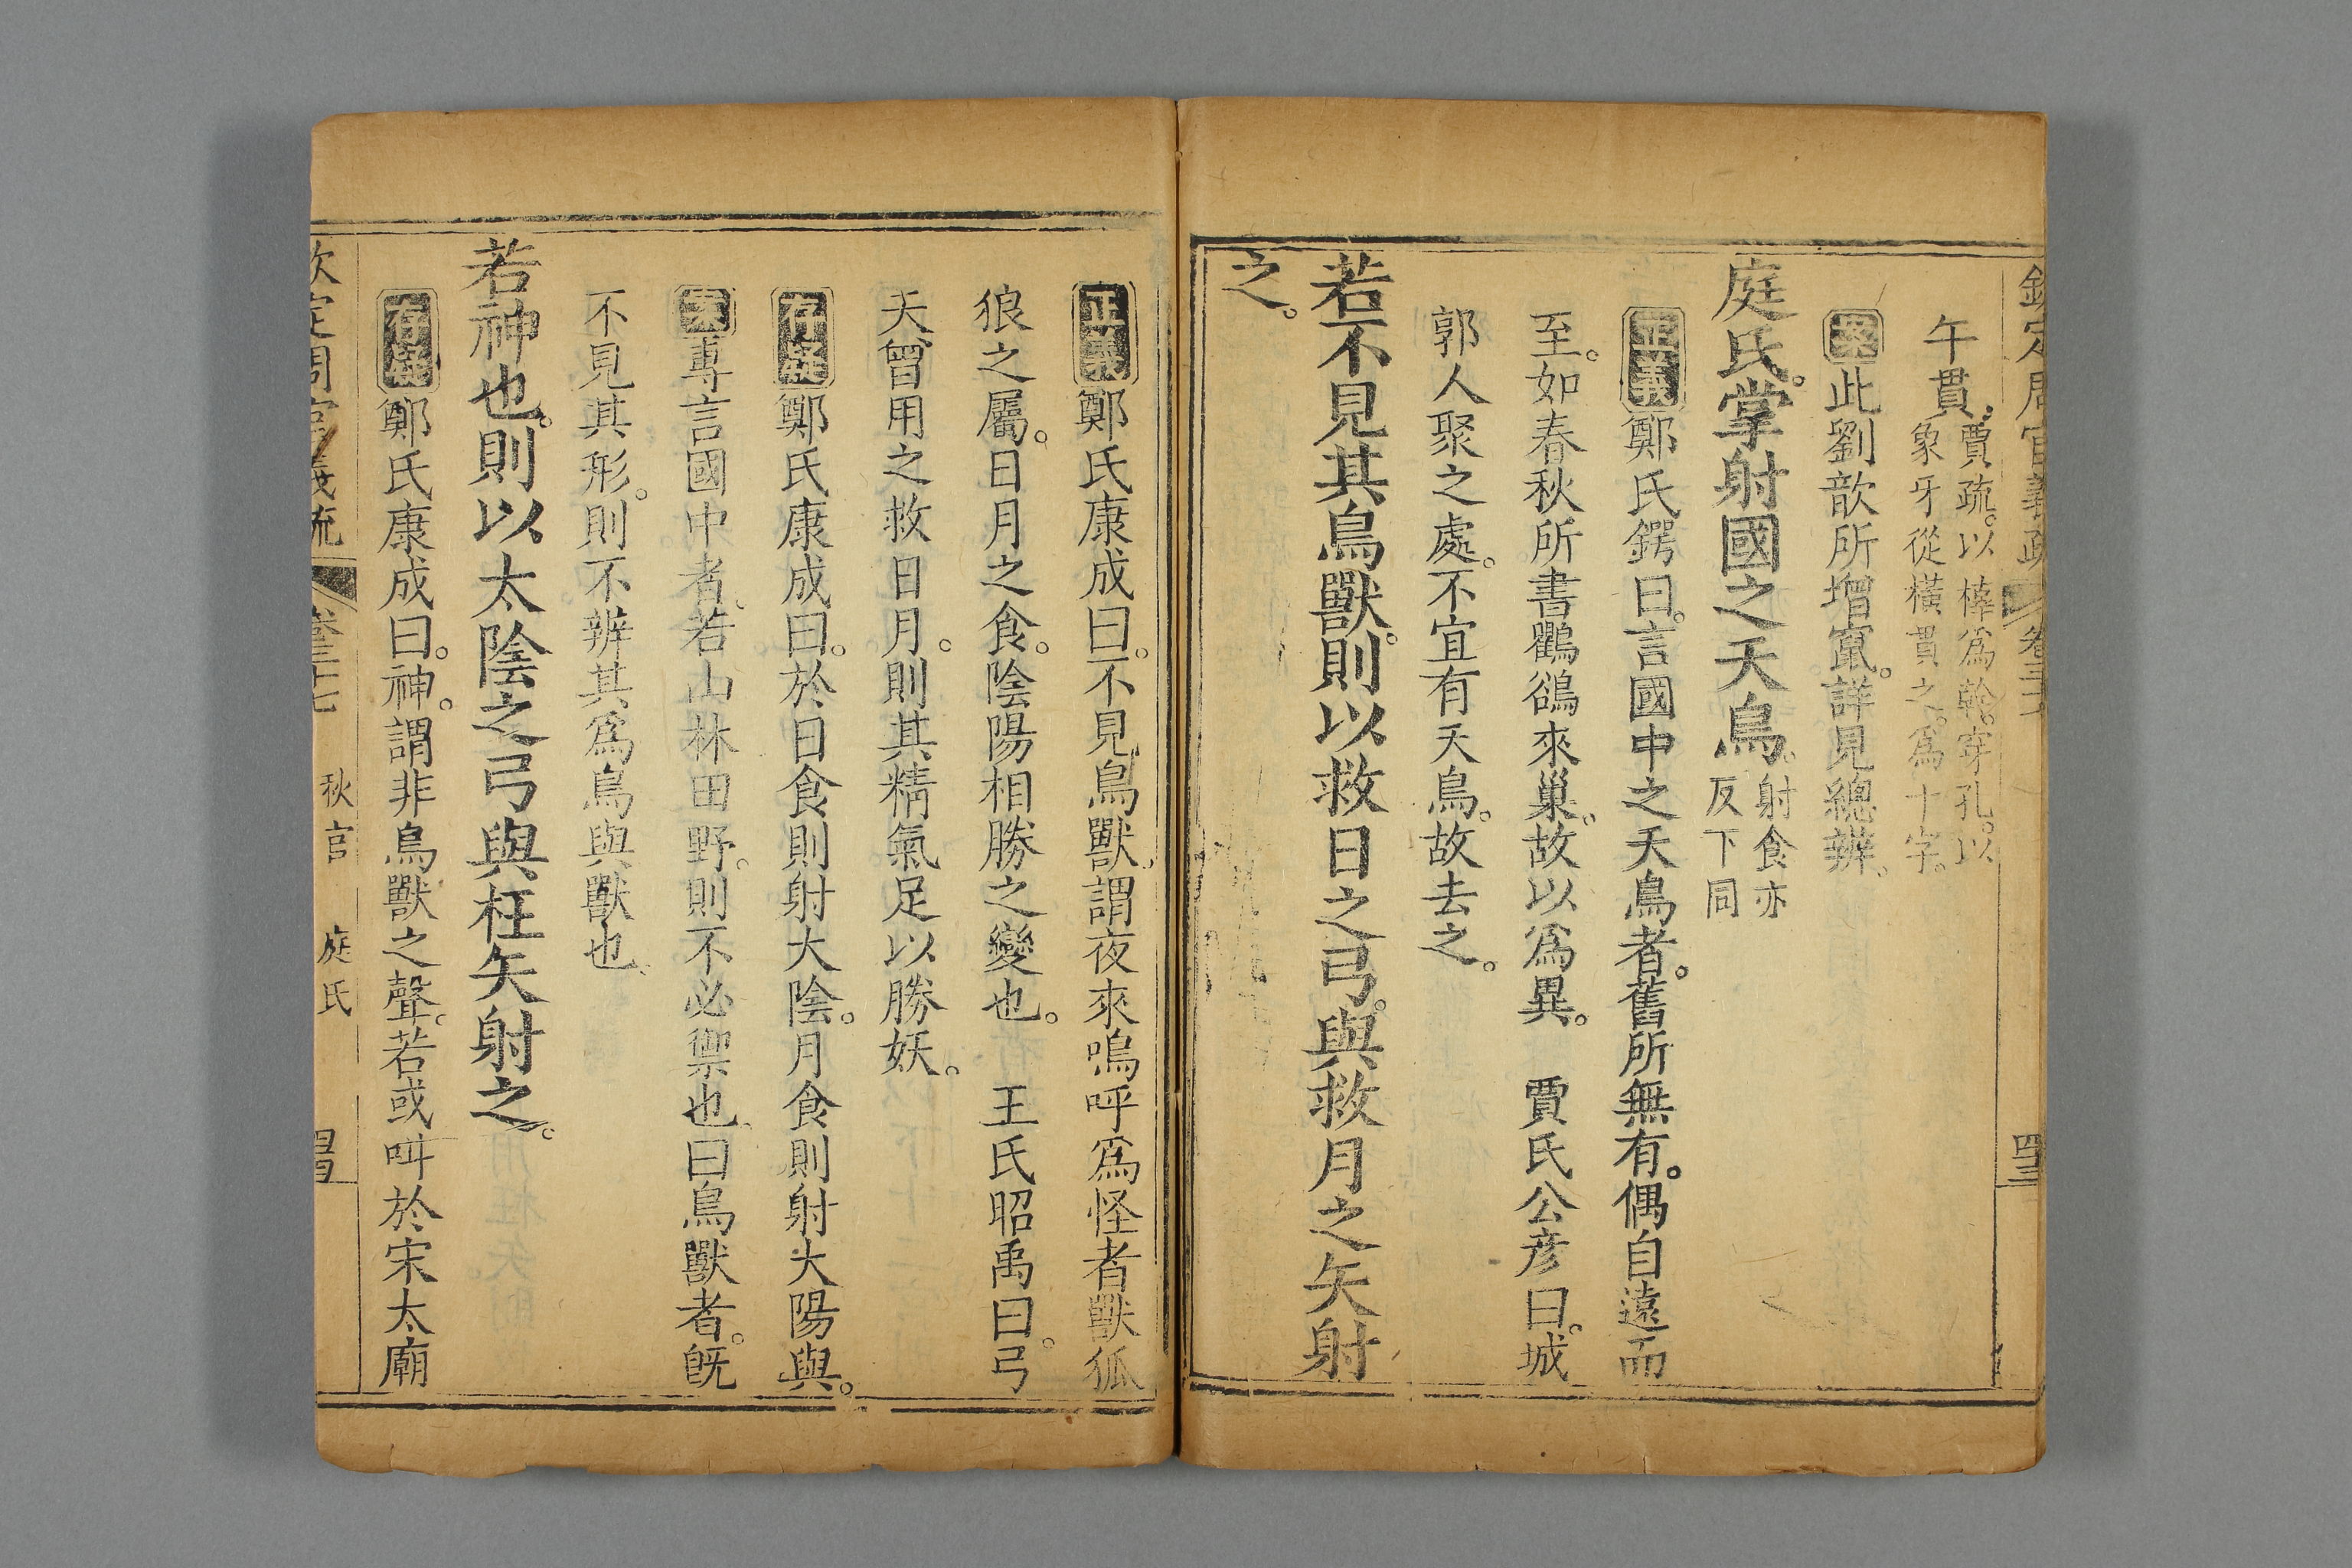 欽定周官義疏 卷三十七 四三
午貫。賈疏。以榫爲幹。穿孔。以
象牙從橫貫之。爲十字。
案此劉歆所增竄。詳見總辨。
庭氏。掌射國之夭鳥。射食亦
反下同
正義鄭氏鍔曰。言國中之夭鳥者。舊所無有。偶自遠而
至。如春秋所書鸜鵒來巢。故以爲異。 賈氏公彦曰。城
郭人聚之處。不宜有夭鳥。故去之。
若不見其鳥獸。則以救日之弓。與救月之矢射
之。
正義鄭氏康成曰。不見鳥獸。謂夜來鳴呼爲怪者。獸狐
狼之屬。日月之食。陰陽相勝之變也。 王氏昭禹曰。弓
矢曾用之救日月。則其精氣足以勝妖。
存疑鄭氏康成曰。於日食則射大陰。月食則射大陽與。
案專言國中者。若山林田野。則不必禦也。曰鳥獸者。旣
不見其形。則不辨其爲鳥與獸也。
若神也。則以太陰之弓與枉矢射之。
存疑鄭氏康成曰。神。謂非鳥獸之聲。若或叫於宋太廟
欽定周官義疏 卷三十七 秋官 庭氏